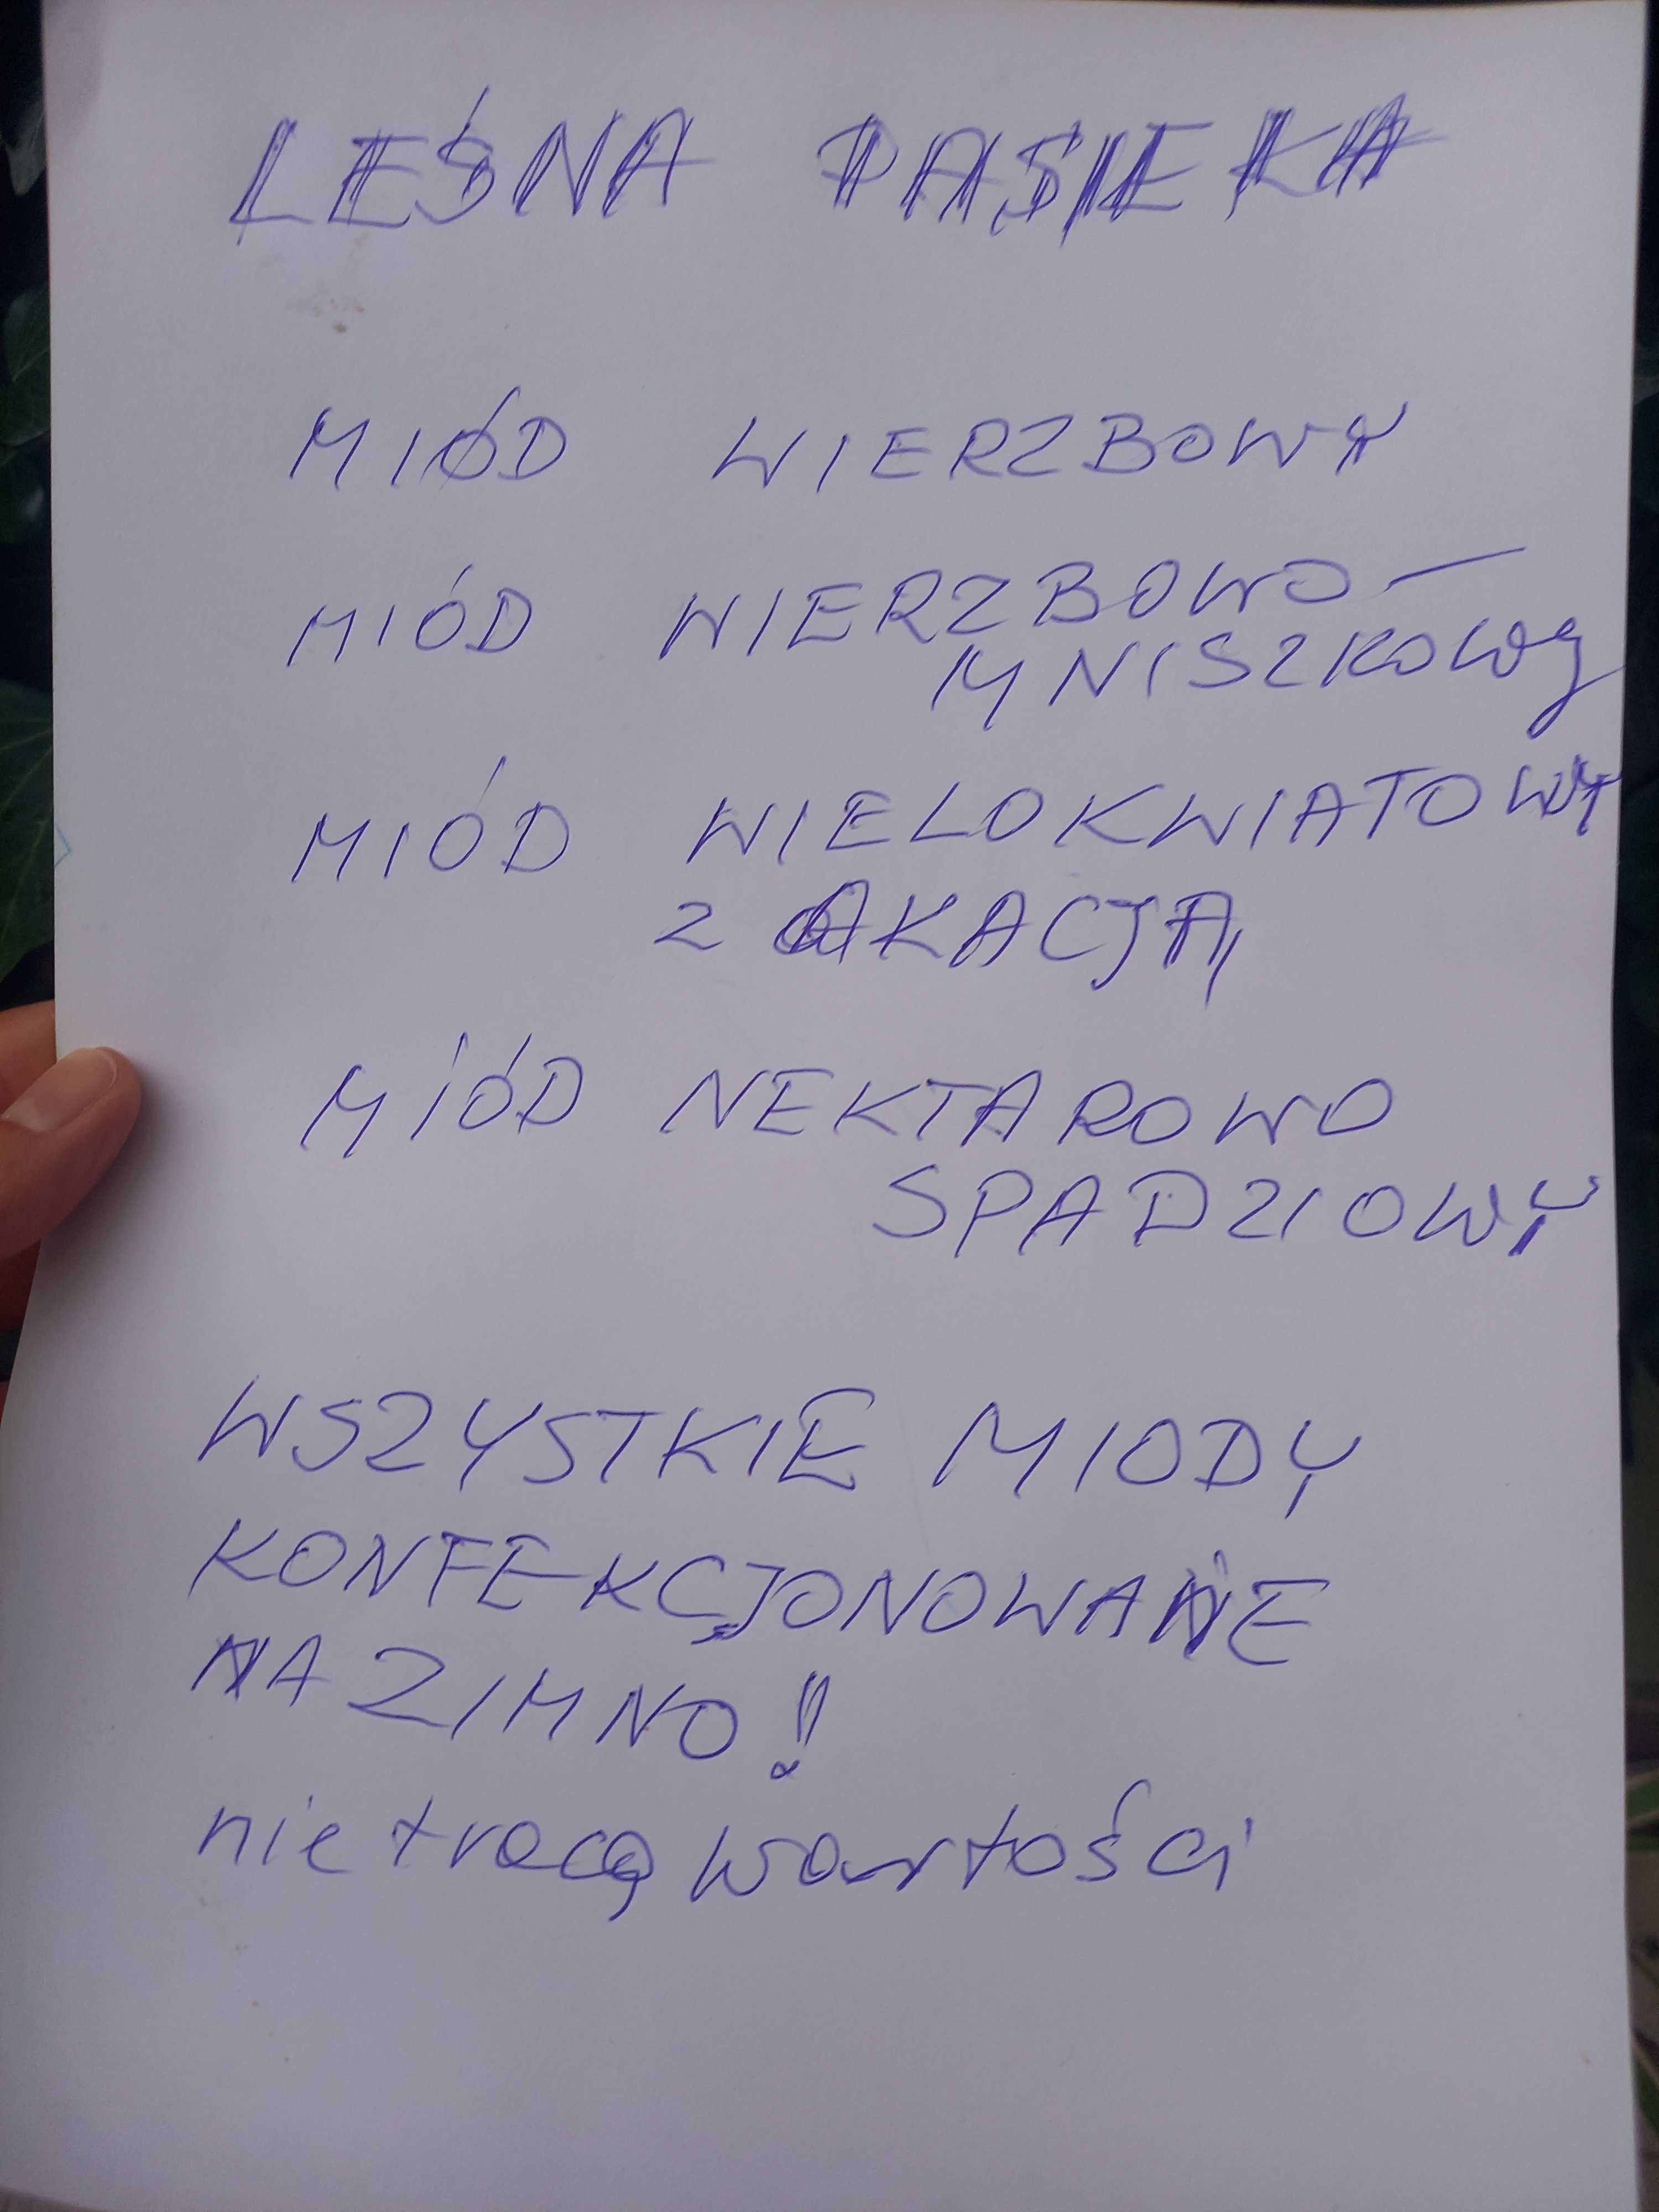 LEŚNA PASIEKA
MIÓD WIERZBOWY
MIÓD WIERZBOWO-
MNISZKOWY
MIÓD WIELOKWIATOWY
Z AKACJĄ
MIÓD NEKTAROWO
SPADZIOWY
WSZYSTKIE MIODY
KONFEKCJONOWANE
NA ZIMNO!
nie tracą wartości